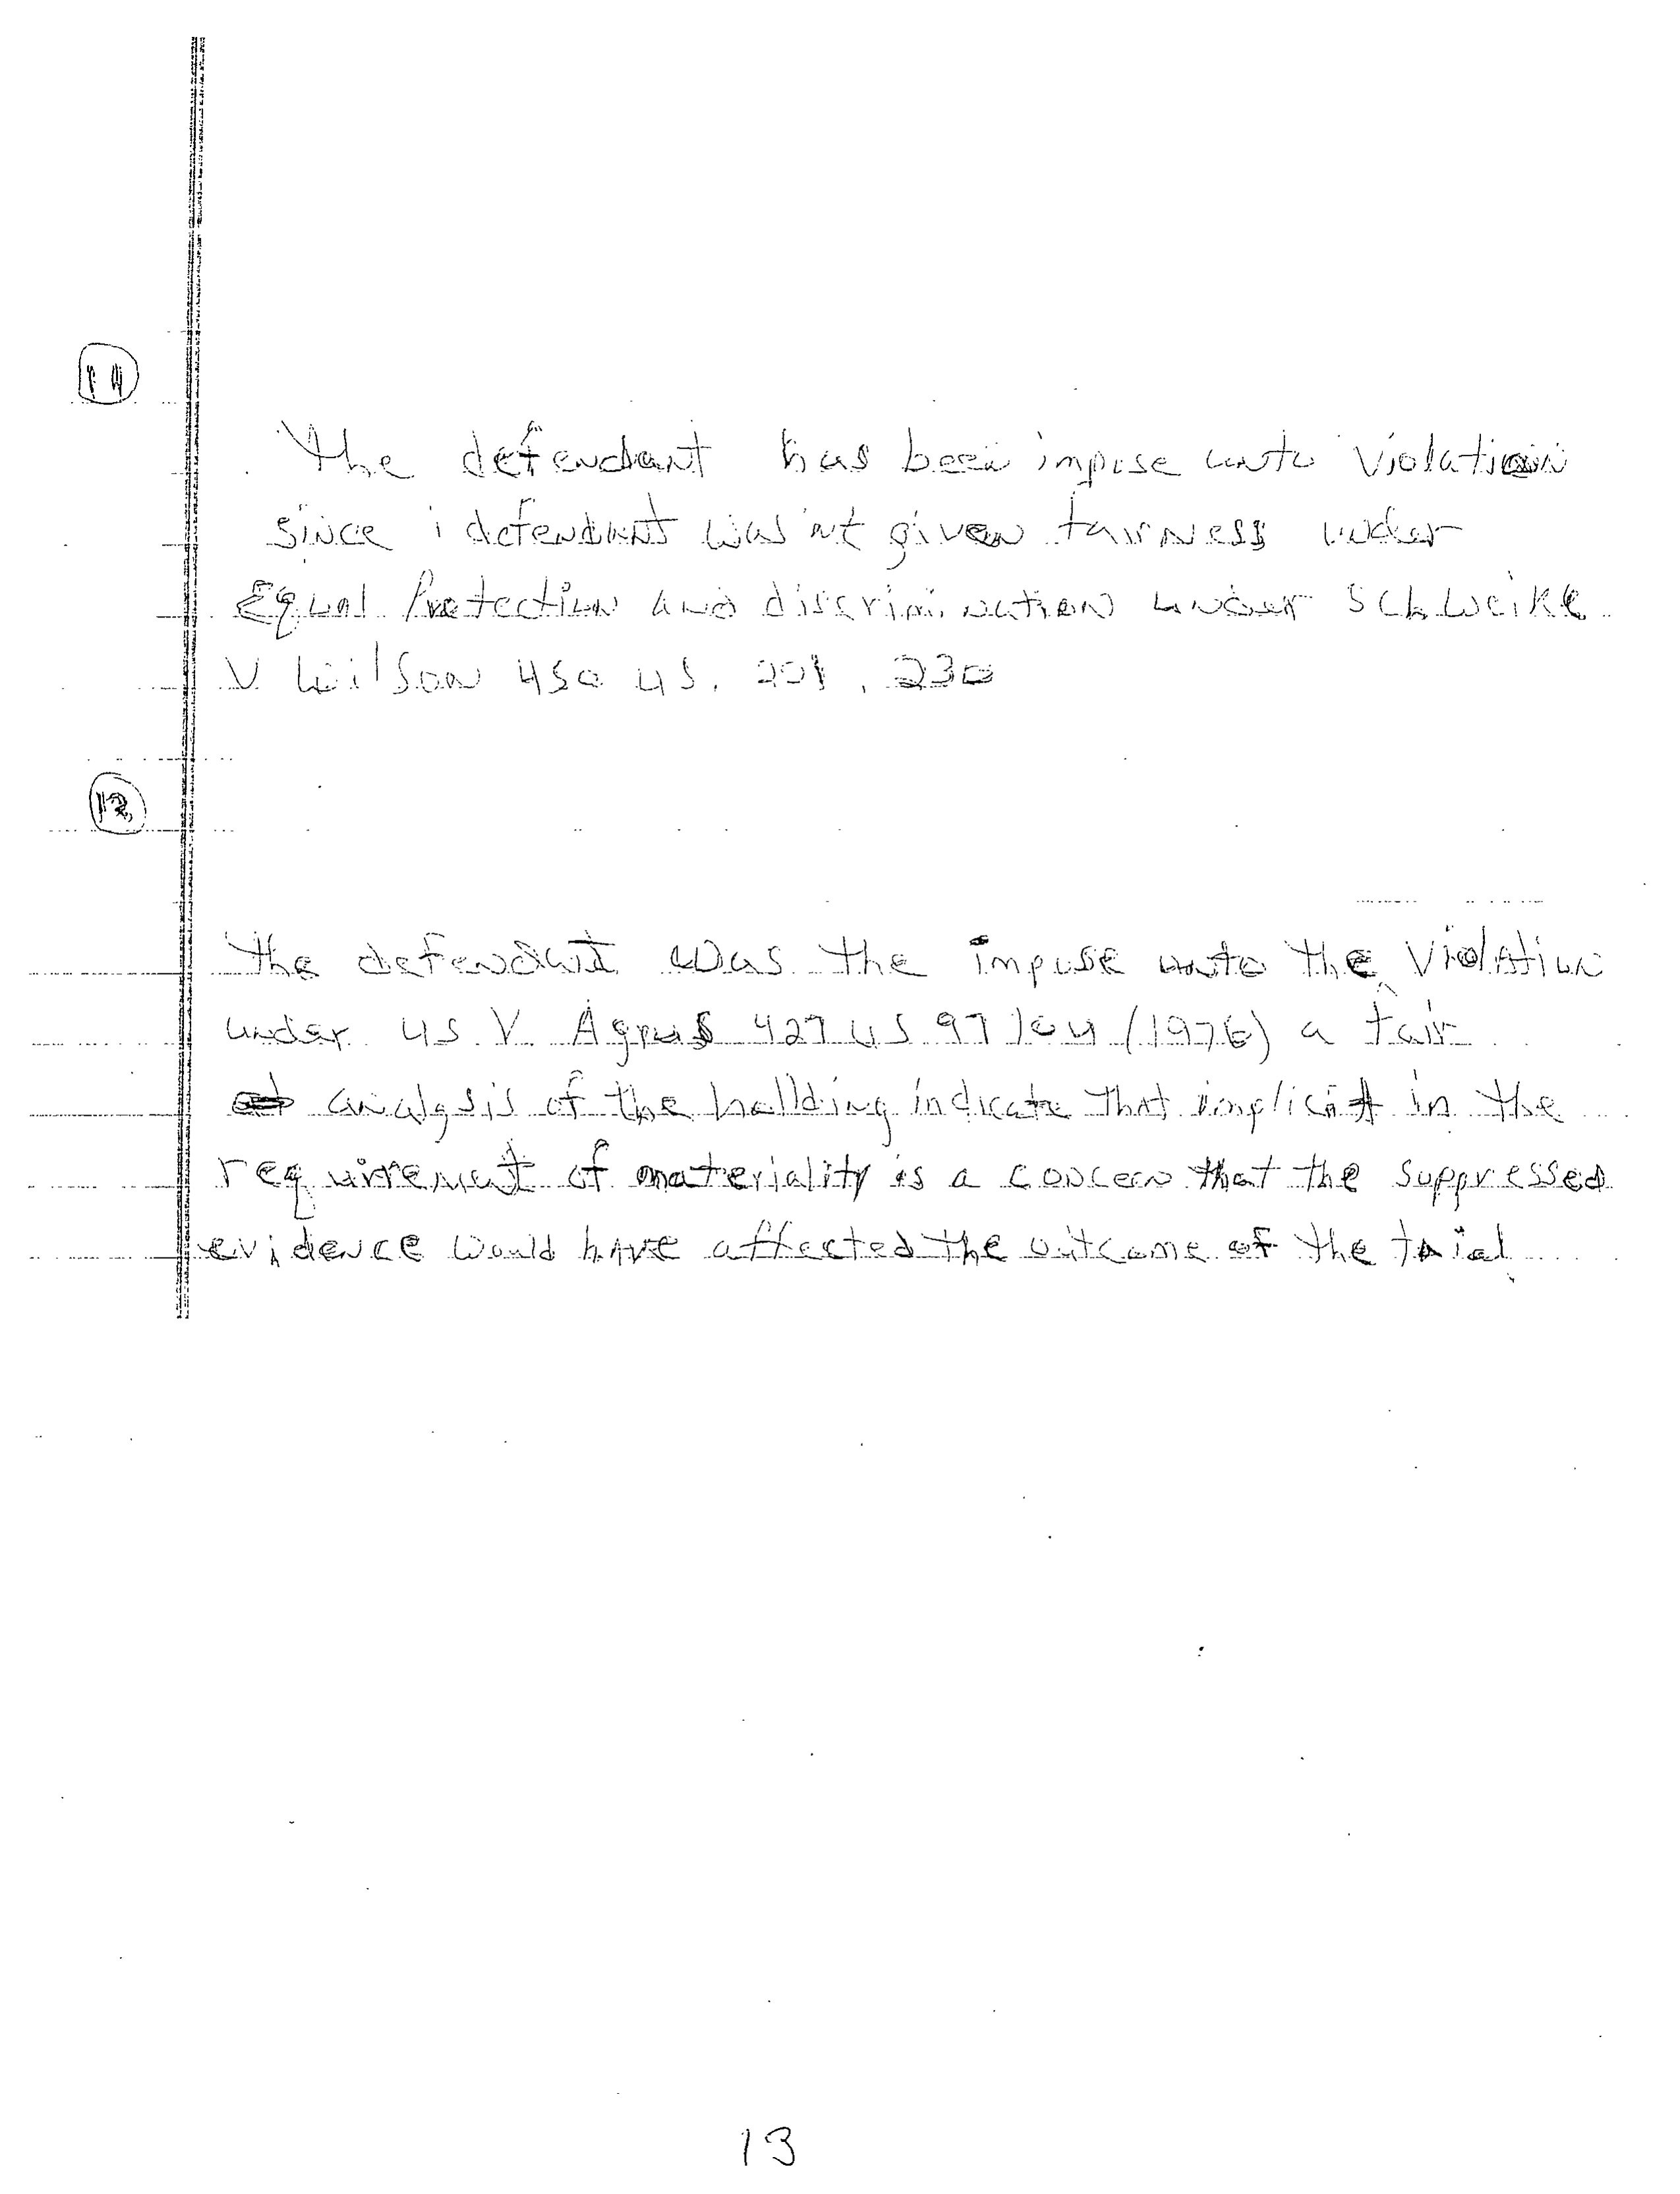 11
The defendant has been impose unto violation
since i defendant was'nt given fairness under
Equal Protection and discrimination under Schweike
V Wilson 450 US. 221, 230
12
The defendant was the impose unto the violation
under US V. Agrus 427 US 97 104 (1976) a fair
analysis of the hallding indicate that implicit in the
requirement of materiality is a concern that the suppressed
evidence would have affected the outcome of the trial
13